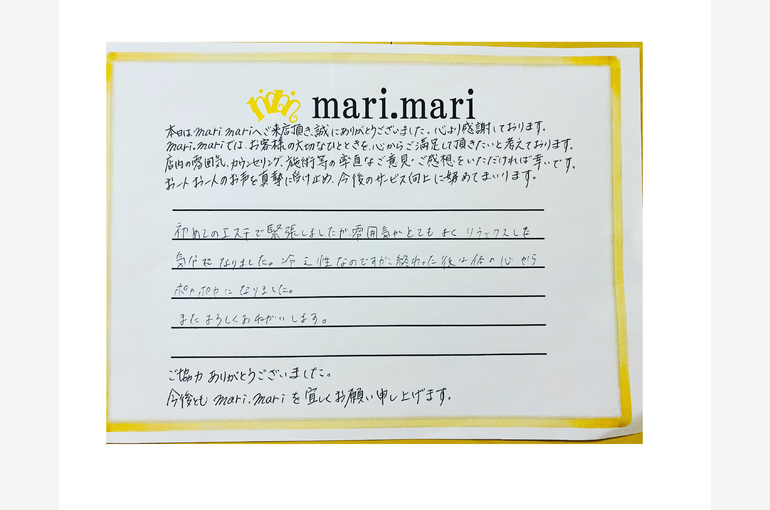 mari.mari
本日は、mari.mariへご来店頂き、誠にありがとうございました。心より感謝しております。
mari.mariでは、お客様の大切なひとときを、心からご満足して頂きたいと考えております。
店内の雰囲気、カウンセリング、施術等の率直なご意見・ご感想をいただければ幸いです。
お一人お一人のお声を真摯に受け止め、今後のサービス向上に努めてまいります。
初めてのエステで緊張しましたが雰囲気がとてもよくリラックスした
気分になりました。冷え性なのですが、終わった後は体の心から
ポカポカになりました。
またよろしくおねがいします。
ご協力ありがとうございました。
今後とも mari.mari を宜しくお願い申し上げます。